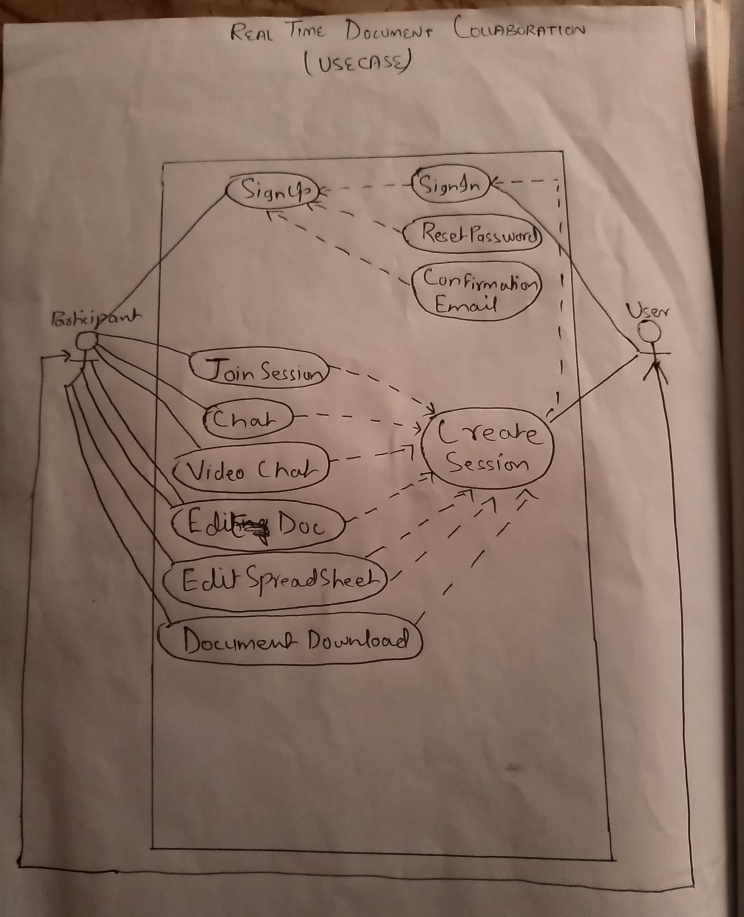 REAL TIME DOCUMENT COLLABORATION
(USECASE)
SignUp
SignIn
ResetPassword
Confirmation
Email
Participant
User
Join Session
Chat
Create
Session
Video Chat
Edit Doc
Edit SpreadSheet
Document Download